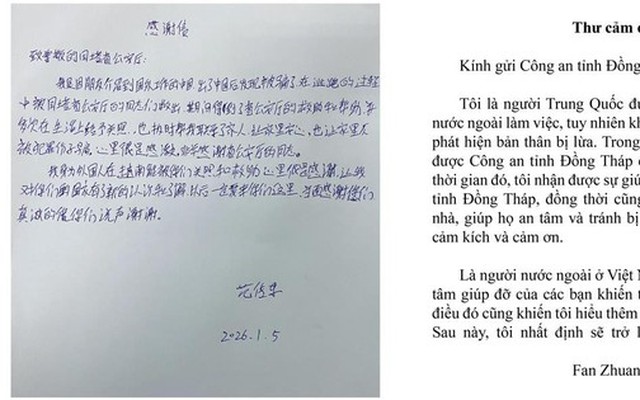 感谢信
致尊敬的同塔省公安厅:
我是因朋友介绍到国外工作的中国,出了中国后发现被骗了在逃跑的过程
中被同塔省公安厅的同志们救出 期间得到了省公安厅的救助和帮助,并
多次在生活上给予关照,也及时帮我联系了家人,让家里安心,也让家里人
被犯罪份子骗,心里很是感激,感谢省公安厅的同志。
我身为外国人在越南能被你们关照和救助心里很是感谢,让我
对你们国家有了新的认识和了解以后一定要来你们这里,感谢你们
真诚的你们说声谢谢。
2026.1.5
Thư cảm
Kính gửi Công an tỉnh Đồng
Tôi là người Trung Quốc
nước ngoài làm việc, tuy nhiên
phát hiện bản thân bị lừa. Trong
được Công an tỉnh Đồng Tháp
thời gian đó, tôi nhận được sự
tỉnh Đồng Tháp, đồng thời
nhà, giúp họ an tâm và tránh bị
cảm kích và cảm ơn.
Là người nước ngoài ở Việt
tâm giúp đỡ của các bạn khiến
điều đó cũng khiến tôi hiểu thêm
Sau này, tôi nhất định sẽ trở
Fan Zhuan